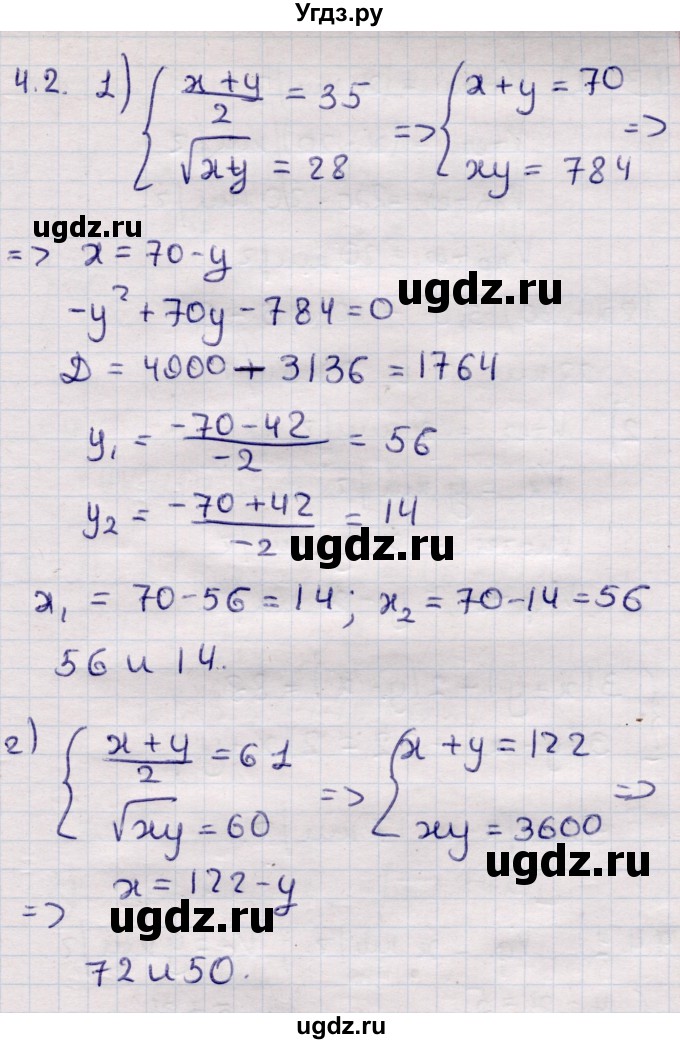 Угдз.ру
4.2. 1) { (x+y)/2 = 35 => { x+y = 70 =>
√xy = 28 xy = 784
ugdz.ru
=> x = 70-y
ugdz.ru
-y²+70y-784=0
D = 4900-3136=1764
y₁ = (-70-42)/-2 = 56
y₂ = (-70+42)/-2 = 14
ugdz.ru
x₁ = 70-56=14; x₂=70-14=56
56 и 14.
2) { (x+y)/2 = 61 => { x+y=122 =>
√xy = 60 xy = 3600
ugdz.ru
=> x = 122-y
ugdz.ru
72 и 50.
ugdz.ru